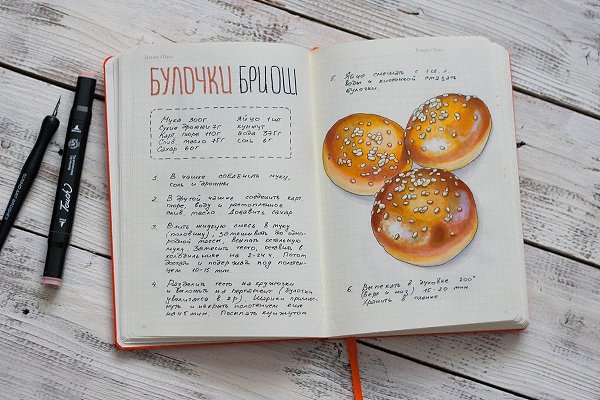 Булочки бриош
Мука 300г
Сухие дрожжи 7г
Карт. пюре 110г
Слив. масло 75г
Сахар 60г
Яйцо 1 шт
кунжут
вода 375г
соль 6г
1. В чашке соединить муку,
соль и дрожжи
2. В другой чашке соединить карт.
пюре, воду и растопленное
слив. масло. Добавить сахар
3. Влить жидкую смесь в муку
(половину), замешивать до одно-
родной массы, всыпать остальную
муку. Замесить тесто, оставить в
холодильнике на 2-24ч. Потом
достать и подержать под полотен-
цем 10-15 мин.
4. Разделить тесто на кругляочки
и выложить на пергамент (булочки
увеличатся в 2р). Шарики приплюс-
нуть и накрыть полотенцем еще
на 45 мин. Посыпать кунжутом
5. Яйцо смешать с 1 ст. л.
воды и кисточкой смазать
булочки.
6. Выпекать в духовке 200°
(верх и низ) 15-20 мин
Хранить в пленке.